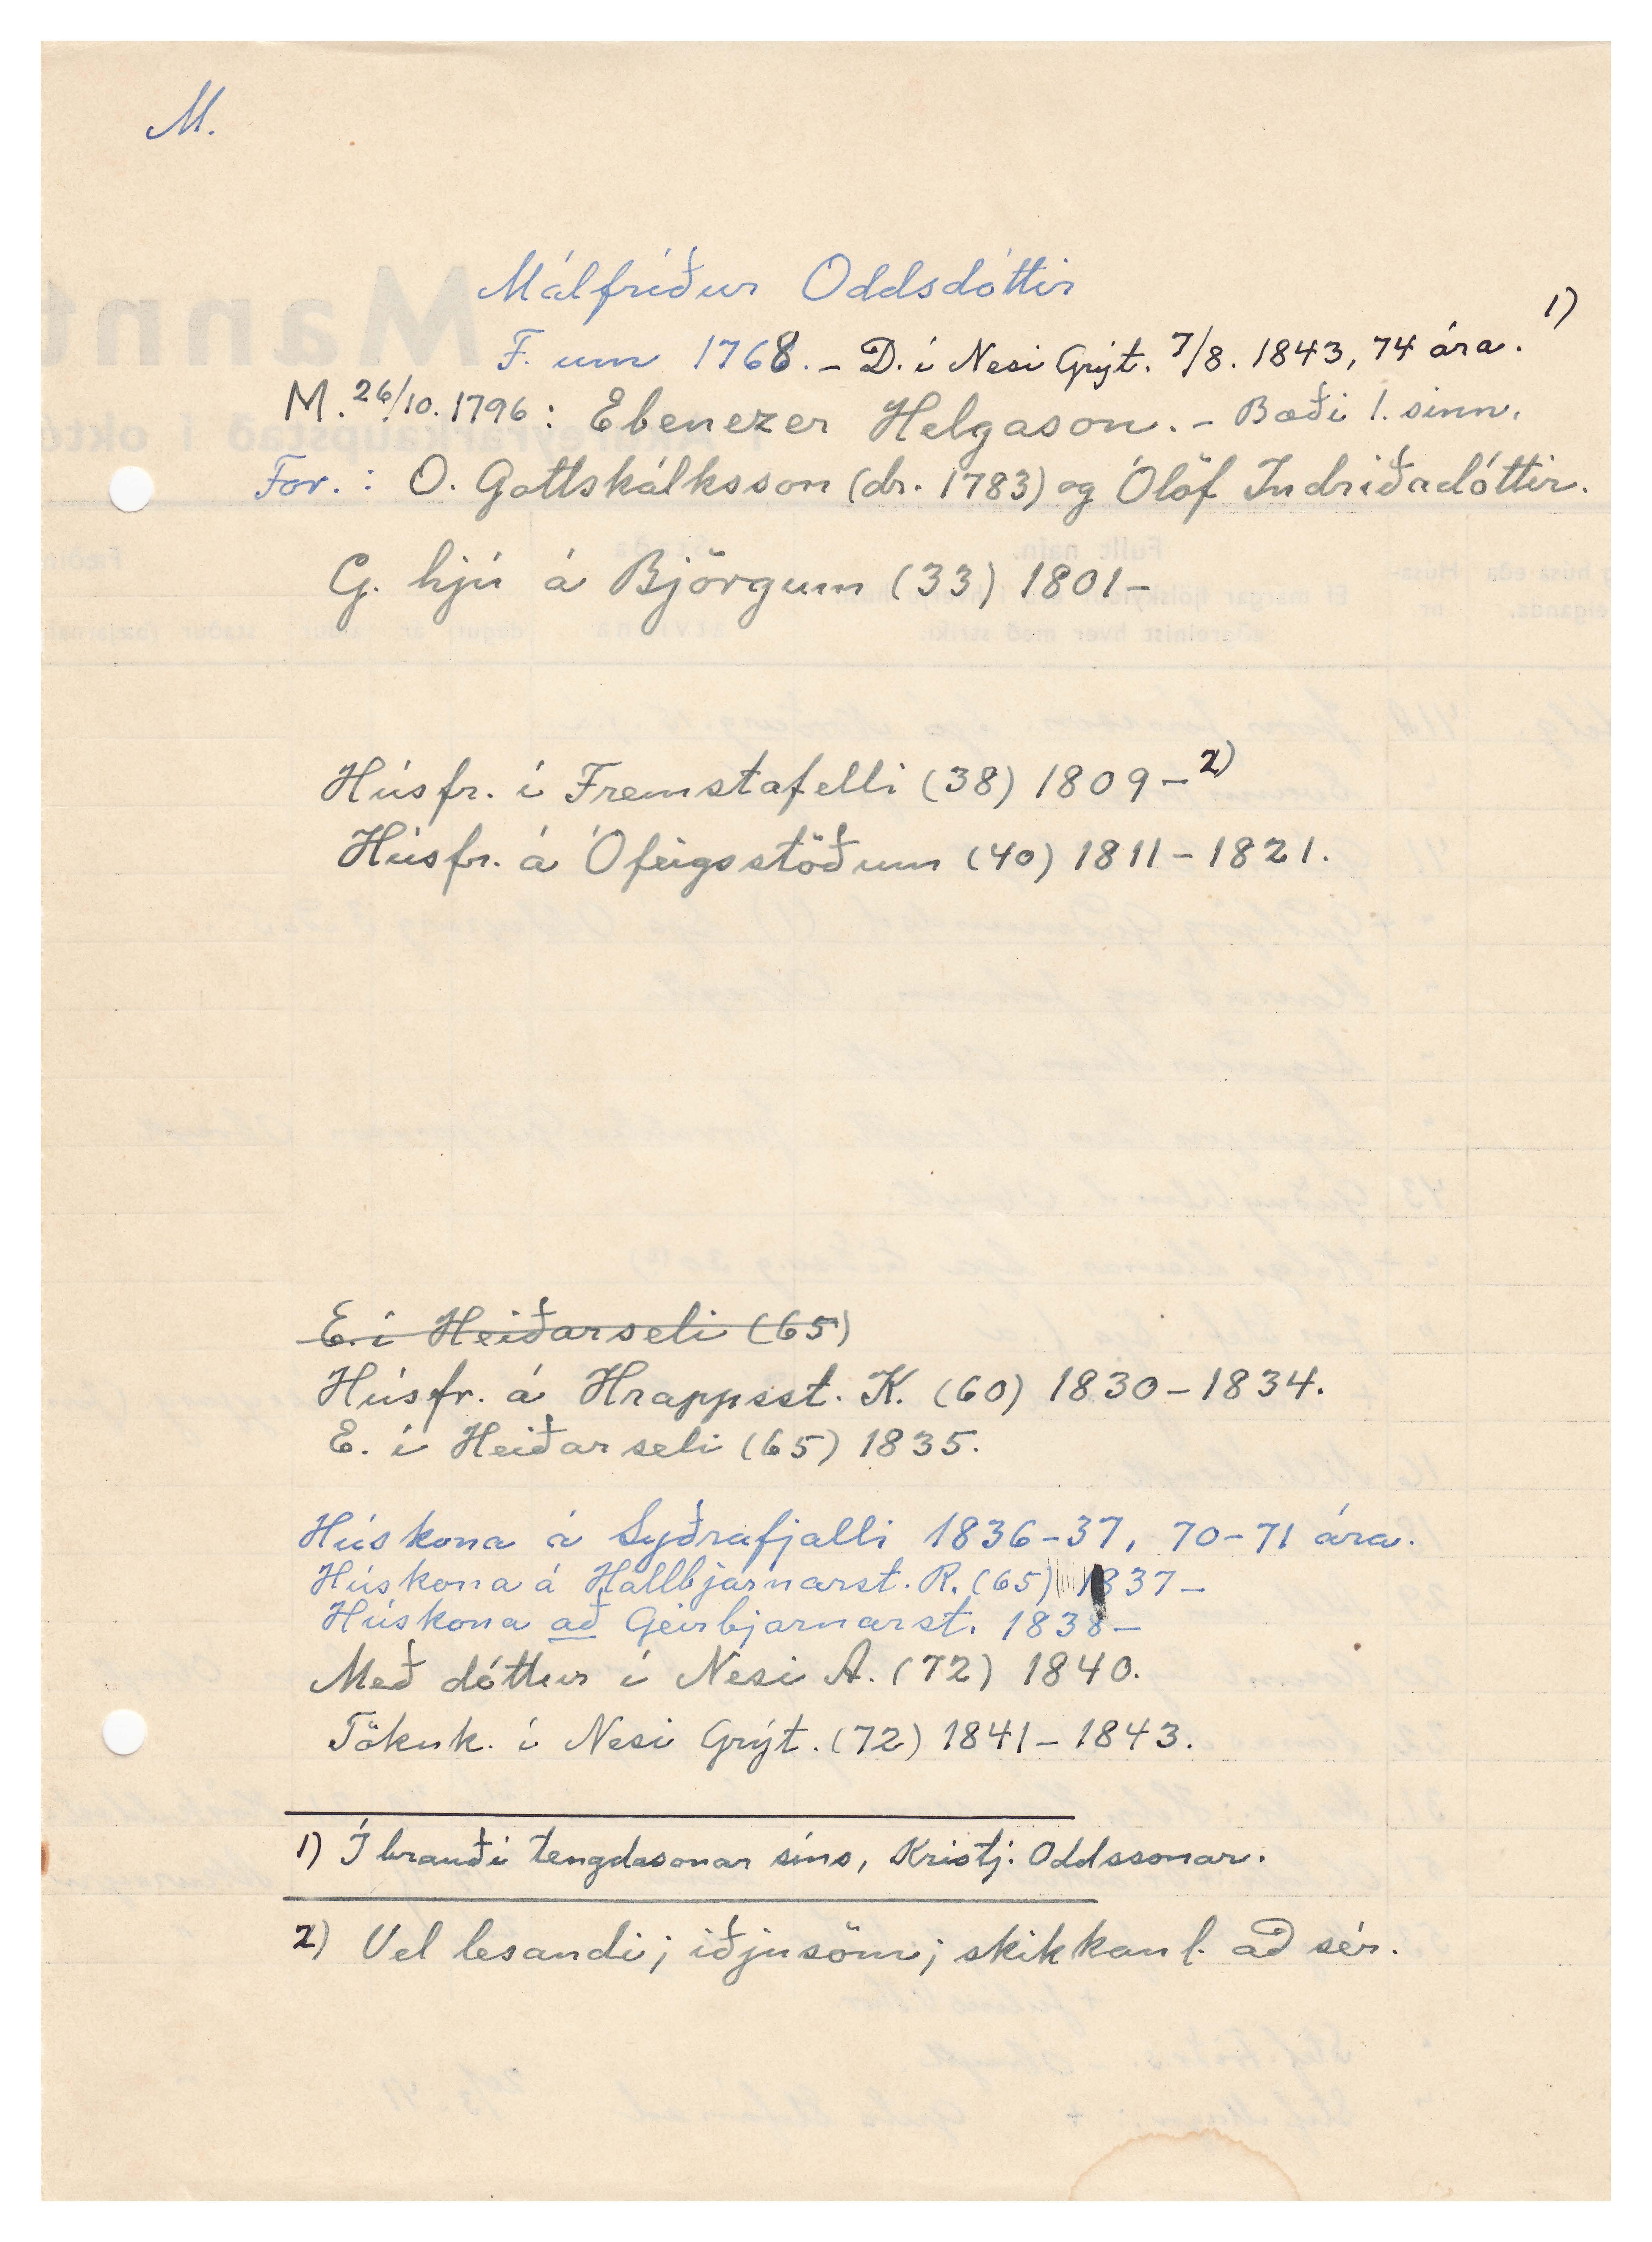 M.
Málfríður Oddsdóttir
F. um 1768. - D. í Nesi Grýt. 7/8. 1843, 74 ára. 1)
M. 26/10. 1796: Ebenezer Helgason. - Bæði 1. sinn.
For.: O. Gottskálksson (dr. 1783) og Ólöf Indriðadóttir.
G. hjú á Björgum (33) 1801-
Húsfr. í Fremstafelli (38) 1809- 2)
Húsfr. á Ófeigsstöðum (40) 1811-1821.
E. í Heiðarseli (65)
Húsfr. á Hrappsst. K. (60) 1830-1834.
E. í Heiðarseli (65) 1835.
Húskona á Syðrafjalli 1836-37, 70-71 ára.
Húskona á Hallbjarnarst. R. (65) 1837-
Húskona að Geirbjarnarst. 1838-
Með dóttur í Nesi A. (72) 1840.
Tökuk. í Nesi Grýt. (72) 1841-1843.
1) Í brauði tengdasonar síns, Kristj. Oddssonar.
2) Vel lesandi; iðjusöm; skikkanl. að sér.